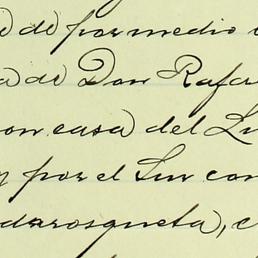 de por medio
a de Don Rafa
con casa del Lu
y por el Sur con
darosqueta), c